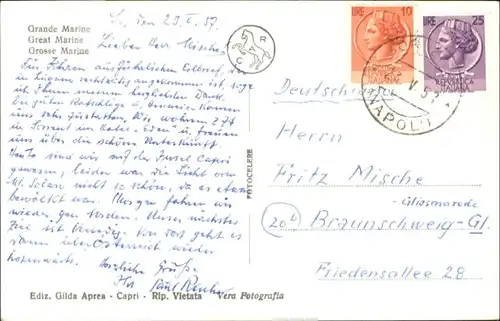 Grande Marine
Great Marine
Grosse Marine
den 23.V.57
Lieber Herr Mische,
Für Ihren ausführlichen Eilbrief, der in
angekommen ist, sage
ich Ihnen meinen herzlichsten Dank.
Die guten Ratschläge u. Hinweise kommen
uns sehr zustatten. Wir wohnen z. Zt
in Sorrent im Hotel "Eden" u. freuen
uns über die schöne Unterkunft.
Heute sind wir auf der Insel Capri
gewesen, leider war die Sicht vom
Mt. Solaro nicht so schön, da es etwas
bewölkt war. Morgen fahren wir
wieder gen Norden. Unser nächstes
Ziel ist Venedig. Von dort geht es
dann über Österreich wieder
heimwärts.
Herzliche Grüße
Ihr
R
C
FOTOCELERE
LIRE 10
LIRE 25
NAPOLI
Deutschland
Herrn
Fritz Mische
Gliesmarode
20b Braunschweig-Gl.
Friedensallee 28
Ediz. Gilda Aprea - Capri - Rip. Vietata Vera Fotografia